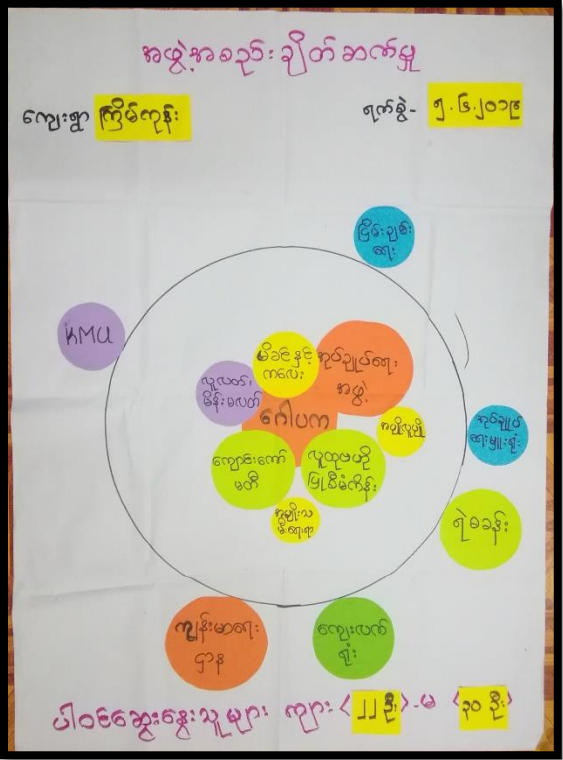 အဖွဲ့အစည်းချိတ်ဆက်မှု
ကျေးရွာ ကြိမ်ကုန်း
ရက်စွဲ- ၅.၆.၂၀၁၉
ငြိမ်းချမ်း
ရေး
KMU
မိခင်နှင့်
ကလေး
အုပ်ချုပ်ရေး
အဖွဲ့
လူလတ်၊
မိန်းမလတ်
ဂေါပက
အမျိုးလူမျို
အုပ်ချုပ်
ရေးမှူးရုံး
ကျောင်းကော်
မတီ
လူထုဗဟို
ပြုစီမံကိန်း
အမျိုးသ
မီးရေးရာ
ရဲစခန်း
ကျန်းမာရေး
ဌာန
ကျေးလက်
ရုံး
ပါဝင်ဆွေးနွေးသူများ ကျား <၂၂ ဦး>-မ <၃၀ ဦး>